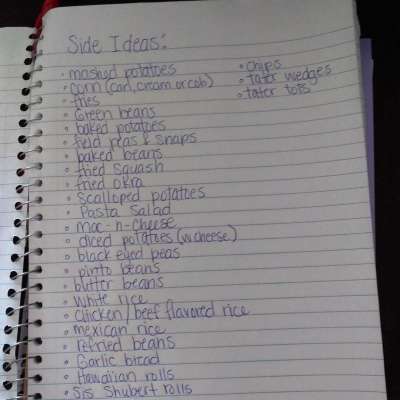 Side Ideas:
• mashed potatoes
• corn (can, cream, or cob)
• fries
• Green beans
• baked potatoes
• field peas & snaps
• baked beans
• fried squash
• fried okra
• Scalloped potatoes
• Pasta Salad
• mac-n-cheese
• diced potatoes (w cheese)
• black eyed peas
• pinto beans
• butter beans
• white rice
• chicken/beef flavored rice
• mexican rice
• refried beans
• Garlic bread
• Hawaiian rolls
• Sis Shubert rolls
• Chips
• Tater wedges
• tater tots